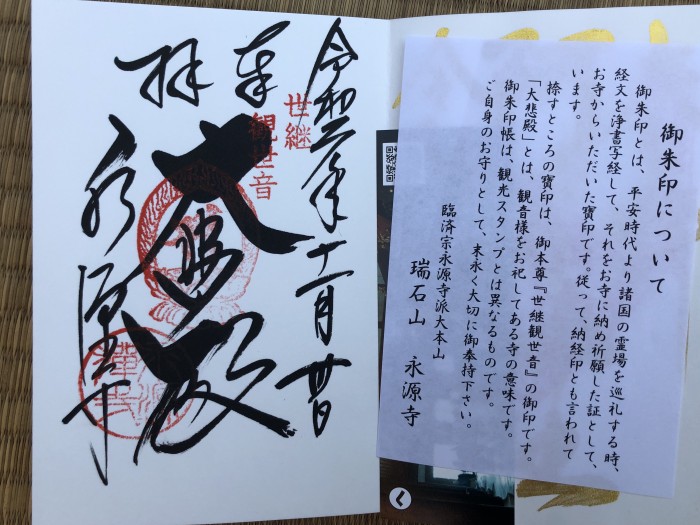 御朱印について
御朱印とは、平安時代より諸国の霊場を巡礼する時、
経文を浄書写経して、それをお寺に納め祈願した証として、
お寺からいただいた寶印です。従って、納経印とも言われて
います。
捺すところの寶印は、御本尊『世継観世音』の御印です。
「大悲殿」とは、観音様をお祀してある寺の意味です。
御朱印帳は、観光スタンプとは異なるものです。
ご自身のお守りとして、末永く大切に御奉持下さい。
臨済宗永源寺派大本山
瑞石山 永源寺
令和二年十一月廿日
奉拝
世継
観世音
大悲殿
永源寺
く